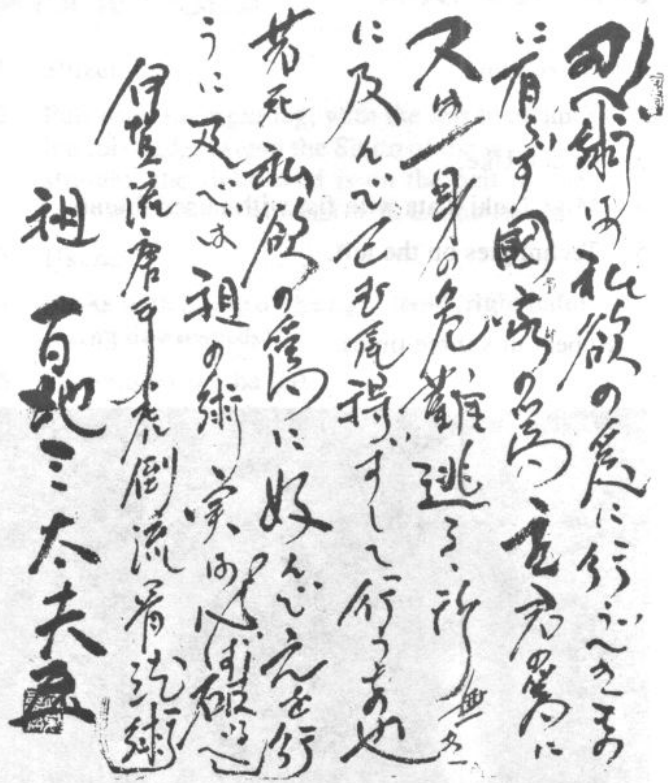 忍び術は私欲の為に行うべきもの
に有らず國家の為主君の為に
又は身の危難逃るゝ所無き
に及んで已む尾得ずして行うもの也
若死私欲の為に好んで之を行
うに及べば祖の術実は必
伊賀流唐手虎倒流骨法術
祖百地三太夫